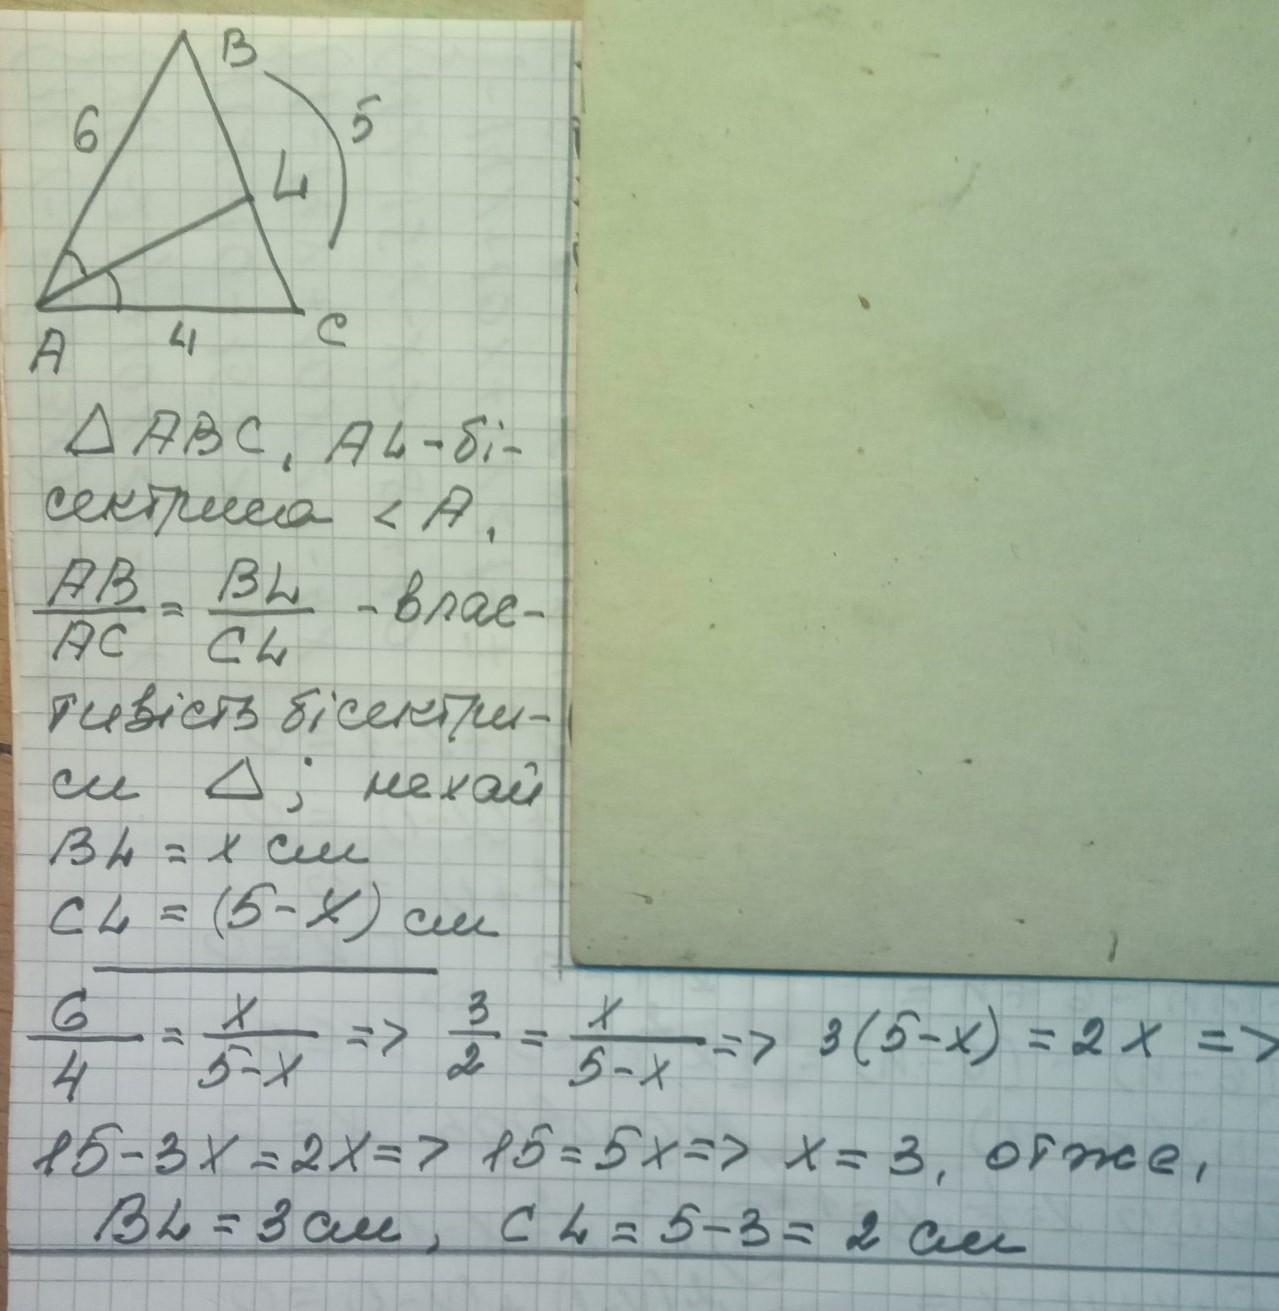 B
6
5
L
A
4
C
△ABC, AL-бі-
сектриса <A,
AB/AC = BL/CL - влас-
тивість бісектри-
си △; нехай
BL = x см
CL = (5-x) см
6/4 = x/5-x => 3/2 = x/5-x => 3(5-x) = 2x =>
15-3x=2x=> 15=5x=> x=3, отже,
BL=3см, CL=5-3=2 см